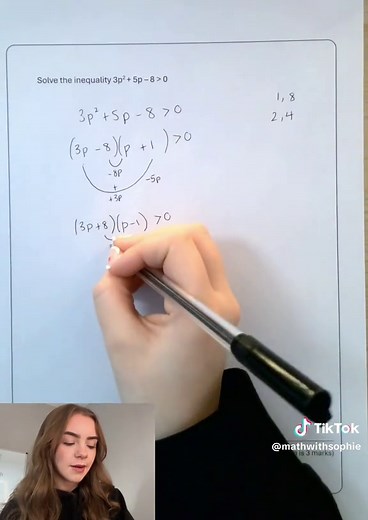 Solve the inequality 3p² + 5p – 8 > 0
1, 8
3p² + 5p – 8 > 0
2, 4
(3p – 8)(p + 1) > 0
-8p
-5p
+
+3p
(3p+8)(p-1) > 0
TikTok
@mathwithsophie
is 3 marks)